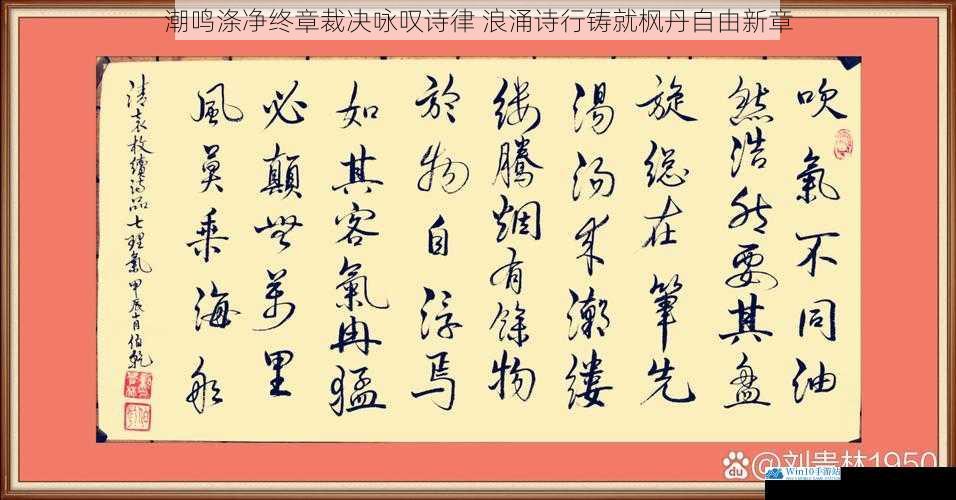 潮鸣涤净终章裁决咏叹诗律 浪涌诗行铸就枫丹自由新章
吹氣不同油
然浩然要其盤
旋總在筆先
湯湯來潮縷
縷騰烟有餘物
於物自浮焉
如其客氣冉猛
必顛無萬里
風莫乘海船
清袁枚續詩品七理氣 甲辰十月伯乾
Bai度 @刘贵林1950
Win10手游站